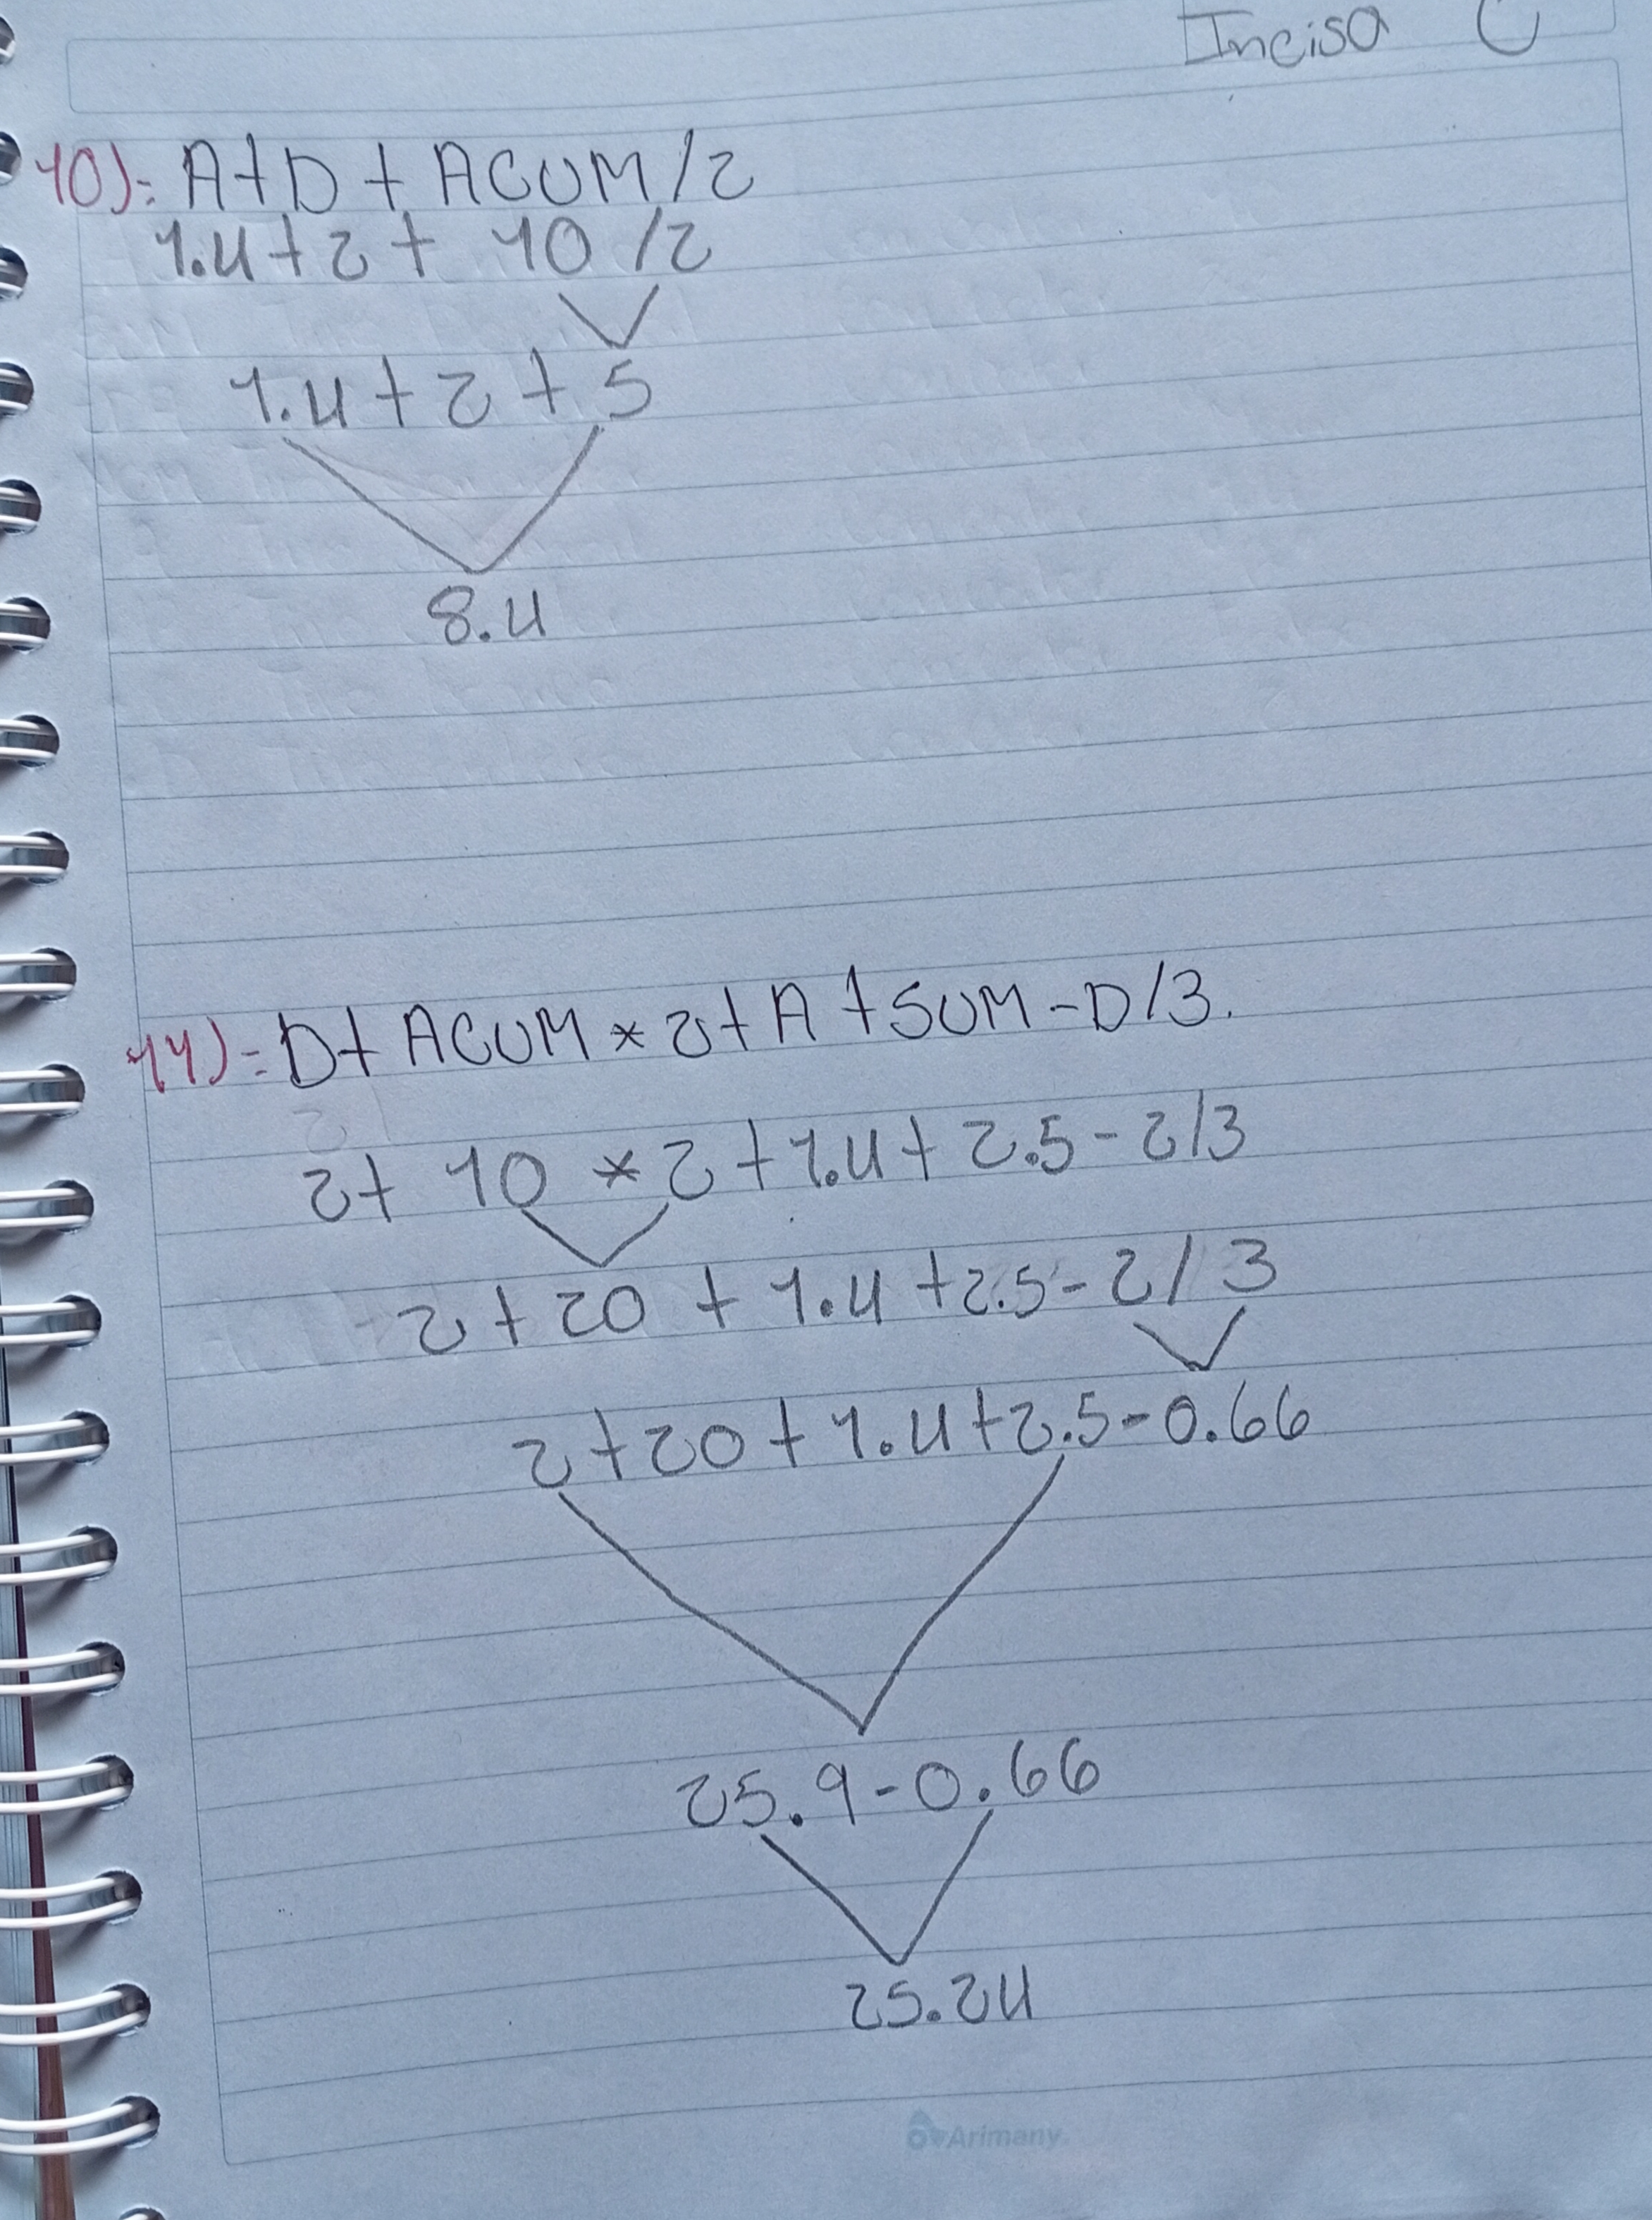 Incisa C
10): A+D + ACUM/2
1.4+2+ 10/2
1.4+2+5
8.4
11)= D+ ACUM * 2+ A +SUM-D/3.
2+ 10 * 2+1.4+2.5-2/3
2+20 + 1.4+2.5-2/3
2+20+1.4+2.5-0.66
25.9-0.66
25.24
Arimany